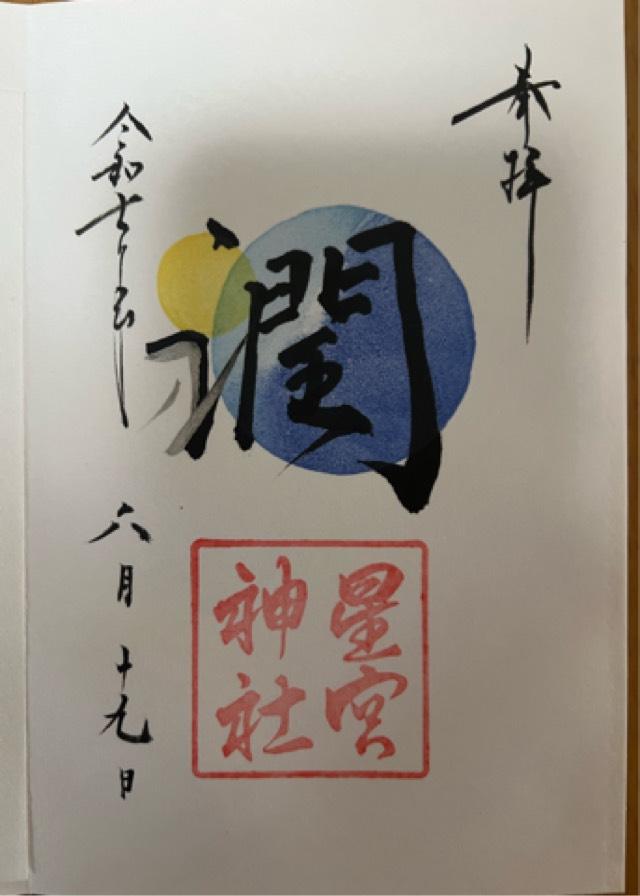 奉拝
潤
星宮
神社
令和七年 六月十九日